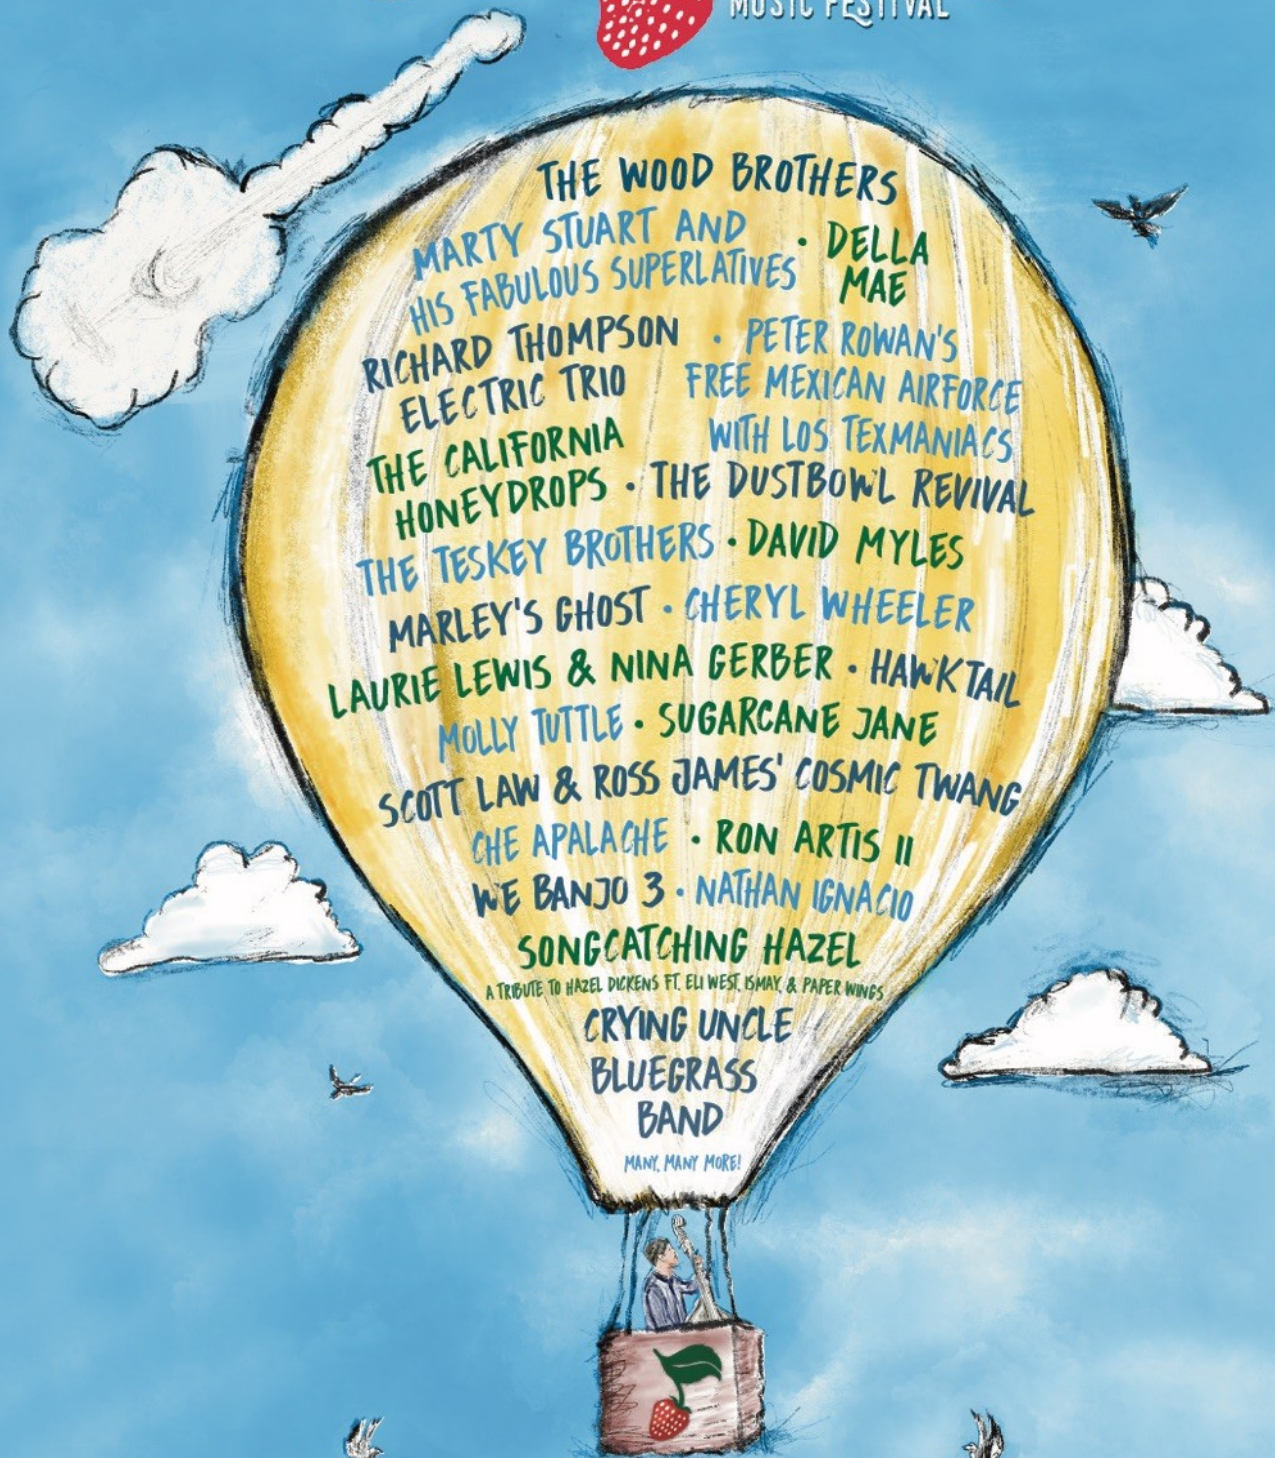 MUSIC FESTIVAL
THE WOOD BROTHERS
MARTY STUART AND
HIS FABULOUS SUPERLATIVES
• DELLA
MAE
RICHARD THOMPSON
ELECTRIC TRIO
• PETER ROWAN'S
FREE MEXICAN AIRFORCE
WITH LOS TEXMANIACS
THE CALIFORNIA
HONEYDROPS • THE DUSTBOWL REVIVAL
THE TESKEY BROTHERS • DAVID MYLES
MARLEY'S GHOST • CHERYL WHEELER
LAURIE LEWIS & NINA GERBER • HAWKTAIL
MOLLY TUTTLE • SUGARCANE JANE
SCOTT LAW & ROSS JAMES' COSMIC TWANG
CHE APALACHE • RON ARTIS II
WE BANJO 3 • NATHAN IGNACIO
SONGCATCHING HAZEL
A TRIBUTE TO HAZEL DICKENS FT. ELI WEST, ISMAY, & PAPER WINGS
CRYING UNCLE
BLUEGRASS
BAND
MANY, MANY MORE!